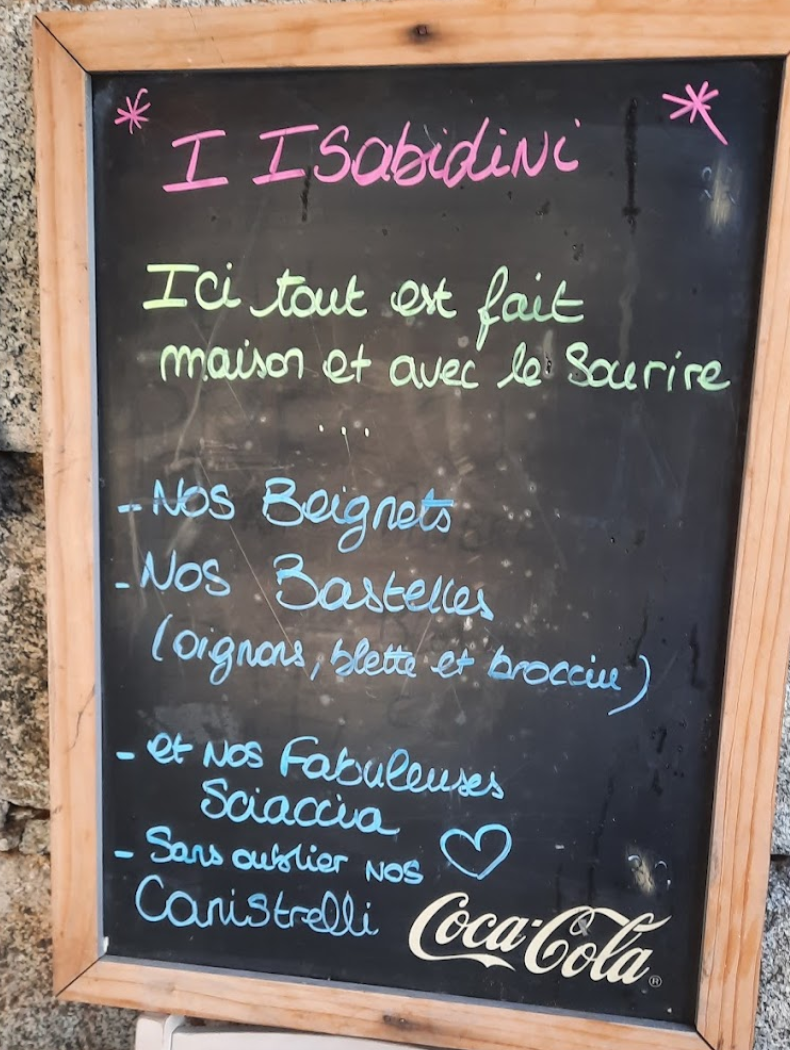 I ISabidiNi
Ici tout est fait
maison et avec le Sourire
...
- NOS Beignets
- NOS Bastelles
(oignons, blette et brocciu)
- et NOS Fabuleuses
Sciaccia
- Sans oublier NOS
Canistrelli
Coca-Cola